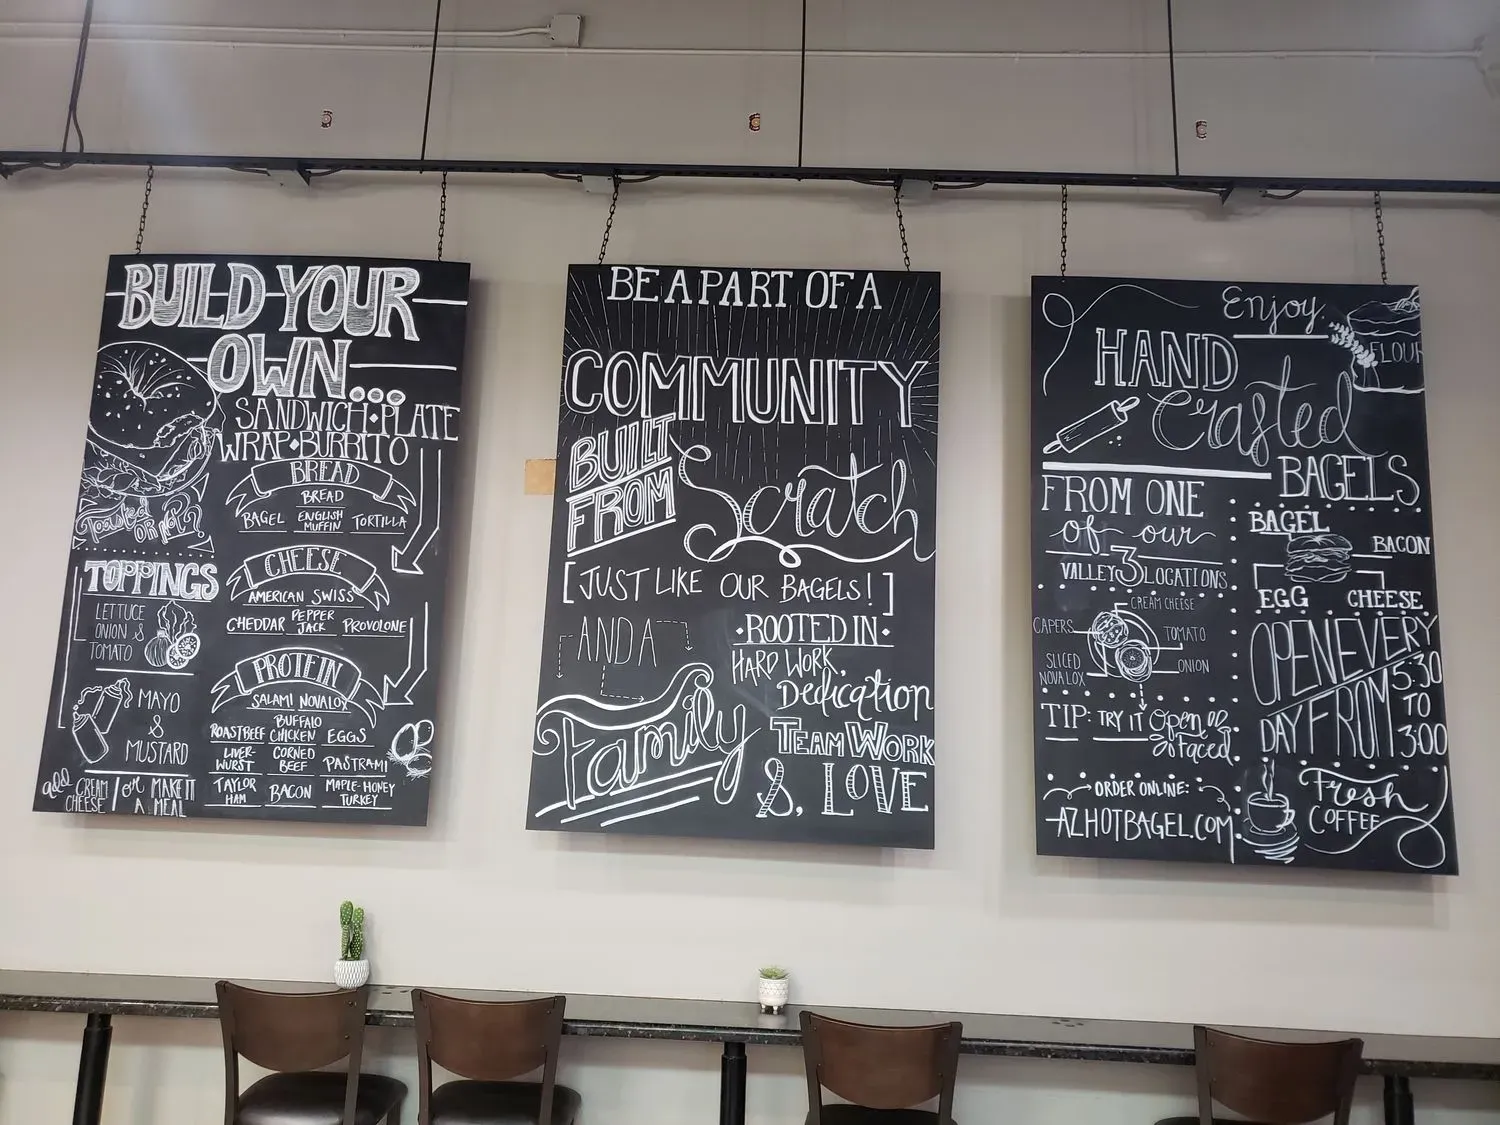 BUILD YOUR
OWN...
SANDWICH • PLATE
WRAP • BURRITO
BREAD
BREAD
BAGEL ENGLISH MUFFIN TORTILLA
Toasted
OR NOT?
CHEESE
AMERICAN SWISS
CHEDDAR PEPPER JACK PROVOLONE
TOPPINGS
LETTUCE
ONION &
TOMATO
MAYO
&
MUSTARD
add CREAM CHEESE
or MAKE IT A MEAL
PROTEIN
SALAMI NOVA LOX
ROAST BEEF BUFFALO CHICKEN EGGS
LIVER-WURST CORNED BEEF PASTRAMI
TAYLOR HAM BACON MAPLE-HONEY TURKEY
BE A PART OF A
COMMUNITY
BUILT
FROM
Scratch
[JUST LIKE OUR BAGELS!]
AND A
Family
• ROOTED IN •
HARD WORK,
Dedication
TEAM WORK
&, LOVE
Enjoy
FLOUR
HAND
Crafted
BAGELS
FROM ONE
of our
VALLEY 3 LOCATIONS
CREAM CHEESE
CAPERS
TOMATO
SLICED
NOVA LOX
ONION
TIP: TRY IT Open
Faced
ORDER ONLINE:
AZHOTBAGEL.COM
BAGEL
BACON
EGG CHEESE
OPEN EVERY
DAY FROM
5:30
TO
3:00
Fresh
COFFEE